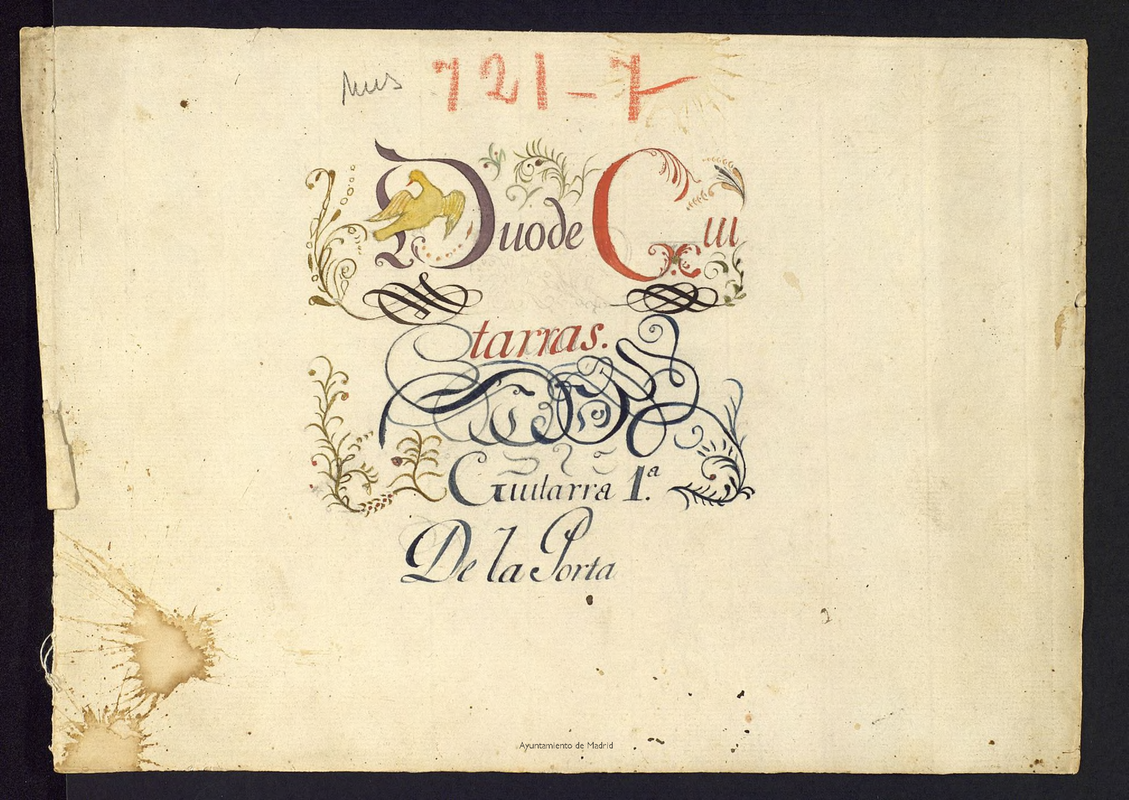 Mus 721-7
Duo de Gui
tarras.
Guitarra 1.ª
De la Porta
Ayuntamiento de Madrid